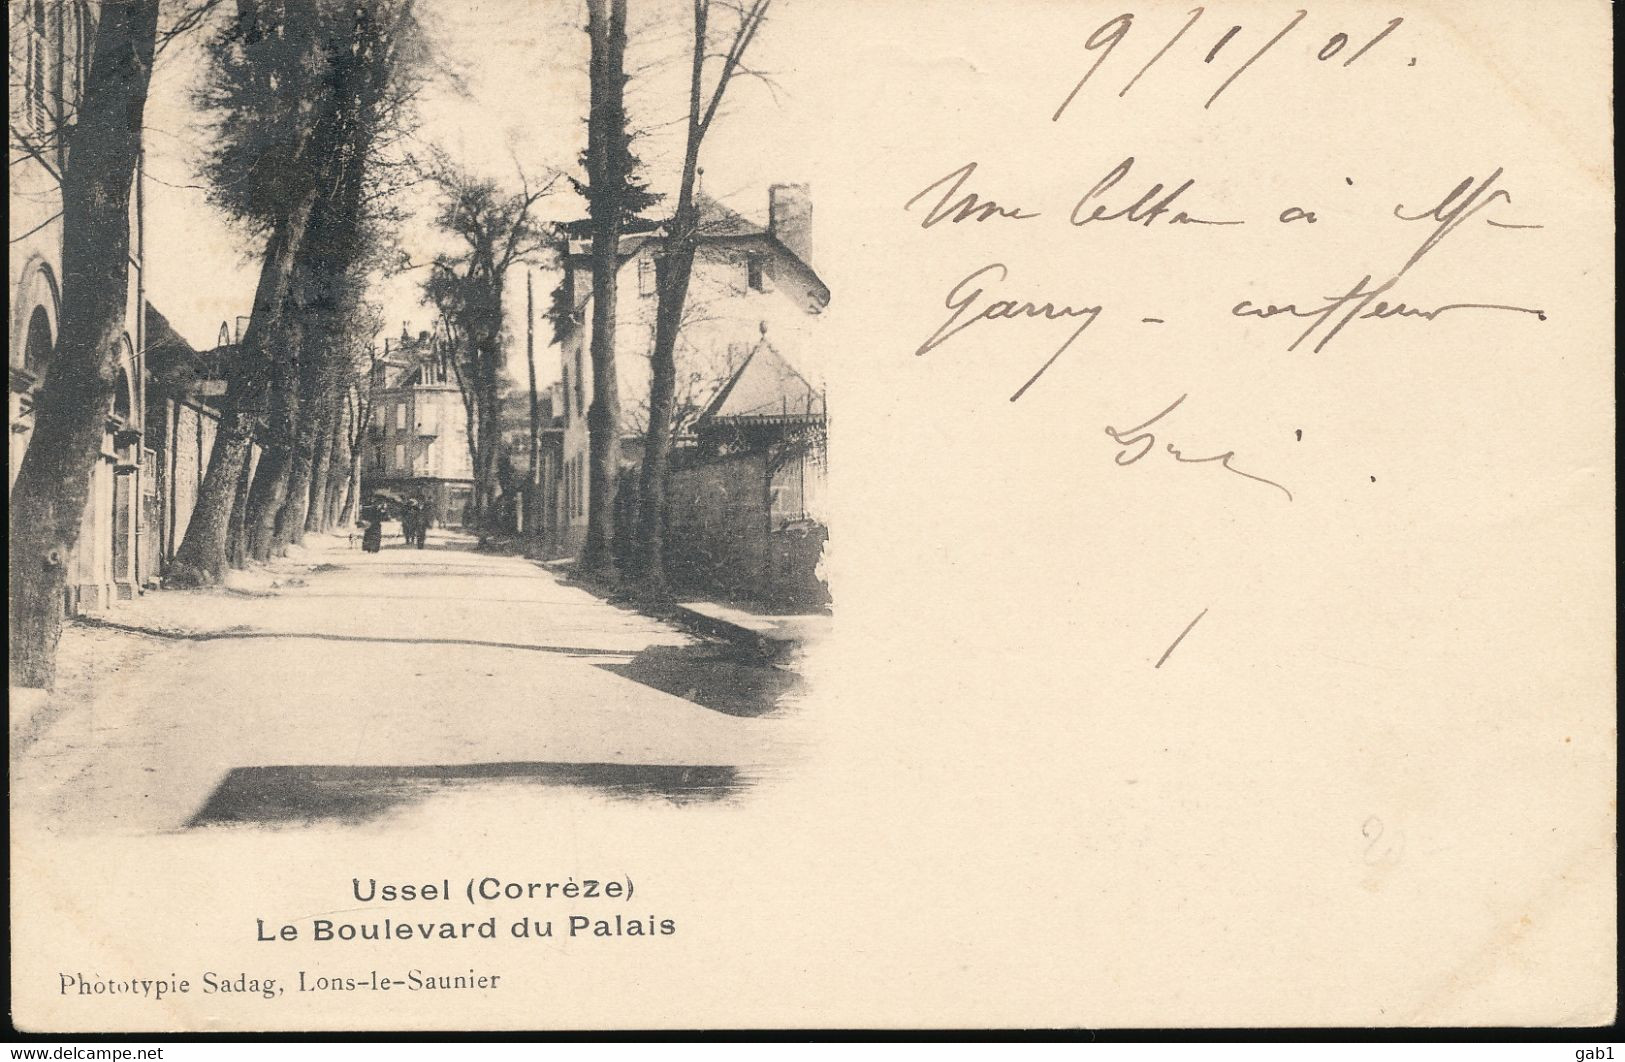 9/1/01.
Une à Mr
Garry - coiffeur
Ussel (Corrèze)
Le Boulevard du Palais
Phototypie Sadag, Lons-le-Saunier
www.delcampe.net
gab1